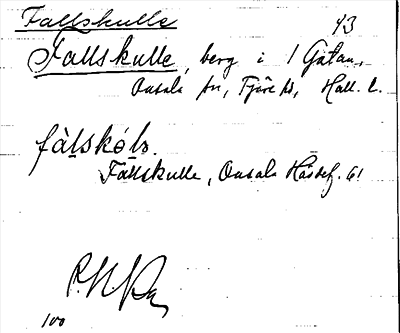 Fallskulle 43
Fallskulle, berg i 1 Gåtan,
Onsala sn, Fjäre hd, Hall. l.
fàlskólə.
Fallskulle, Onsala Hässef. 61
100